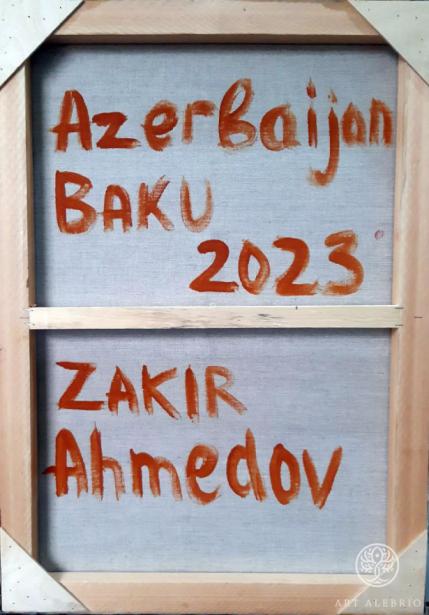 Azerbaijan
BAKU
2023
ZAKIR
Ahmedov
ART ALEBRIO